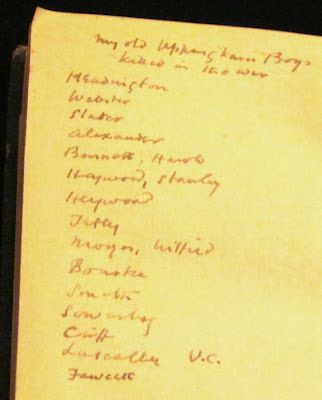 my old Uppingham Boys
killed in the war
Headington
Webster
Slater
Alexander
Bennett, Harold
Haywood, Stanley
Heywood
Tetley
Moyes, Wilfrid
Bourke
Smith
Sowerby
Cliff
Lascelles V.C.
Fawcett